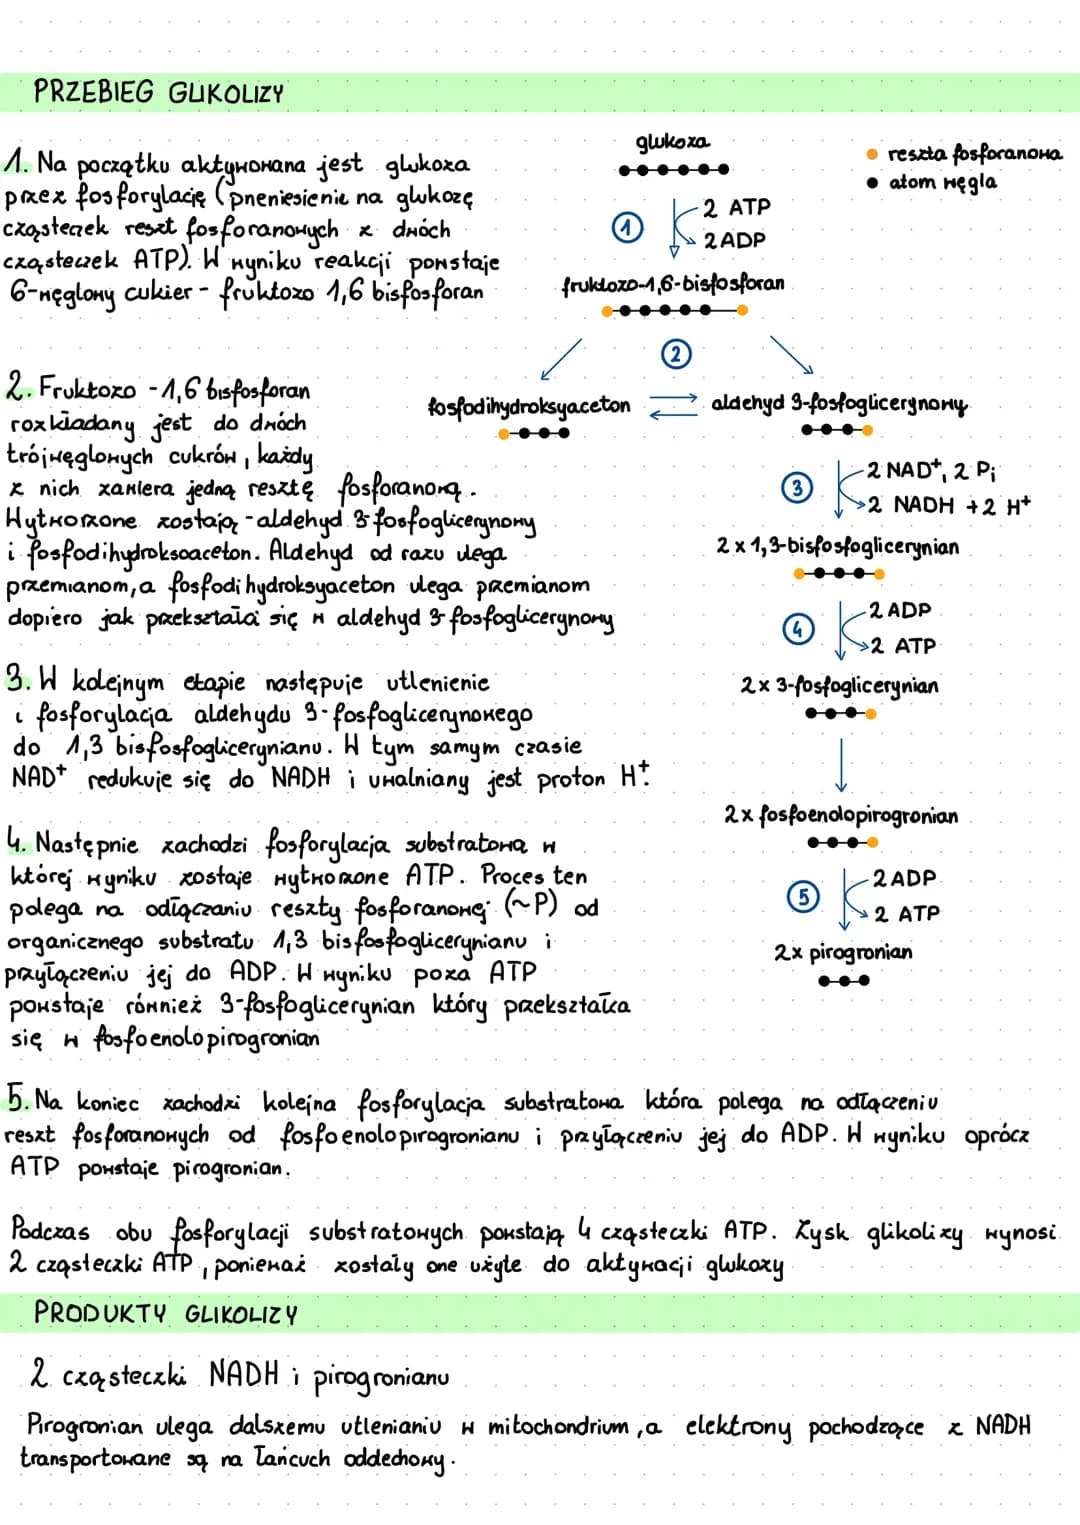 PRZEBIEG GLIKOLIZY
1. Na początku aktywowana jest glukoza
przez fosforylację (pneniesienie na glukozę
cząsteczek reszt fosforanowych z dwóch
cząsteczek ATP). W wyniku reakcji powstaje
6-węglowy cukier - fruktozo 1,6 bisfosforan
2. Fruktozo -1,6 bisfosforan
rozkładany jest do dwóch
trójwęglowych cukrów, każdy
z nich zawiera jedną resztę fosforanową.
Wytworzone zostają -aldehyd 3-fosfoglicerynowy
i fosfodihydroksoaceton. Aldehyd od razu ulega
przemianom, a fosfodihydroksyaceton ulega przemianom
dopiero jak przekształci się w aldehyd 3-fosfoglicerynowy
3. W kolejnym etapie następuje utlenienie
i fosforylacja aldehydu 3-fosfoglicerynowego
do 1,3 bisfosfoglicerynianu. W tym samym czasie
NAD⁺ redukuje się do NADH i uwalniany jest proton H⁺.
4. Następnie zachodzi fosforylacja substratowa w
której wyniku zostaje wytworzone ATP. Proces ten
polega na odłączaniu reszty fosforanowej (~P) od
organicznego substratu 1,3 bisfosfoglicerynianu i
przyłączeniu jej do ADP. W wyniku poza ATP
powstaje również 3-fosfoglicerynian który przekształca
się w fosfoenolopirogronian
glukoza
reszta fosforanowa
atom węgla
1
2 ATP
2 ADP
fruktozo-1,6-bisfosforan
2
fosfodihydroksyaceton
aldehyd 3-fosfoglicerynowy
3
2 NAD⁺, 2 Pi
2 NADH + 2 H⁺
2 x 1,3-bisfosfoglicerynian
4
2 ADP
2 ATP
2 x 3-fosfoglicerynian
2 x fosfoenolopirogronian
5
2 ADP
2 ATP
2x pirogronian
5. Na koniec zachodzi kolejna fosforylacja substratowa która polega na odłączeniu
reszt fosforanowych od fosfoenolopirogronianu i przyłączeniu jej do ADP. W wyniku oprócz
ATP powstaje pirogronian.
Podczas obu fosforylacji substratowych powstają 4 cząsteczki ATP. Zysk glikolizy wynosi
2 cząsteczki ATP, ponieważ zostały one użyte do aktywacji glukozy
PRODUKTY GLIKOLIZY
2 cząsteczki NADH i pirogronianu
Pirogronian ulega dalszemu utlenianiu w mitochondrium, a elektrony pochodzące z NADH
transportowane są na łańcuch oddechowy.